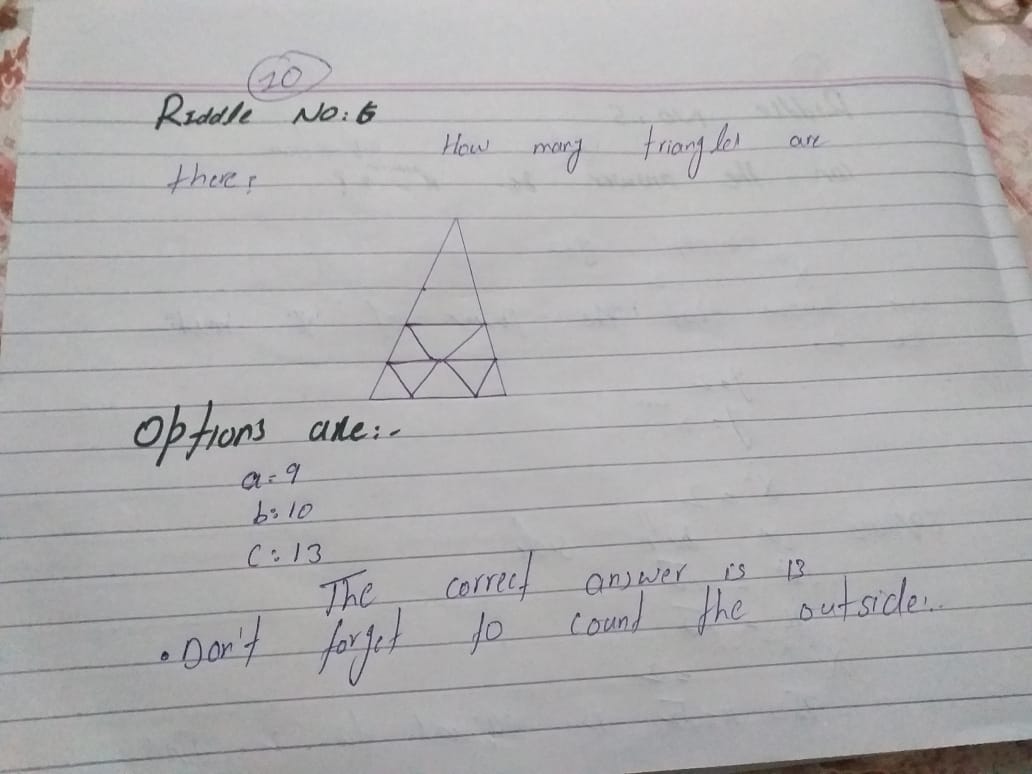 10
Riddle No: 6
How many triangles are
there?
Options are:-
a= 9
b: 10
c: 13
The correct answer is 13
• Don't forget to count the outside..